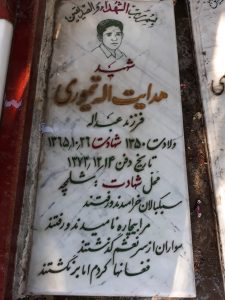 بسم رب الشهداء و الصدیقین
شهید
هدایت اله تیموری
فرزند عبداله
ولادت ۱۳۵۰ شهادت ۱۳۶۵,۱۰,۲۶
تاریخ دفن ۱۳۷۳,۱۲,۱۳
محل شهادت: شلمچه
سبکبالان خرامیدند و رفتند
مرا بیچاره نامیدند و رفتند
سواران از سر نعشم گذشتند
فغانها کردم اما برنگشتند